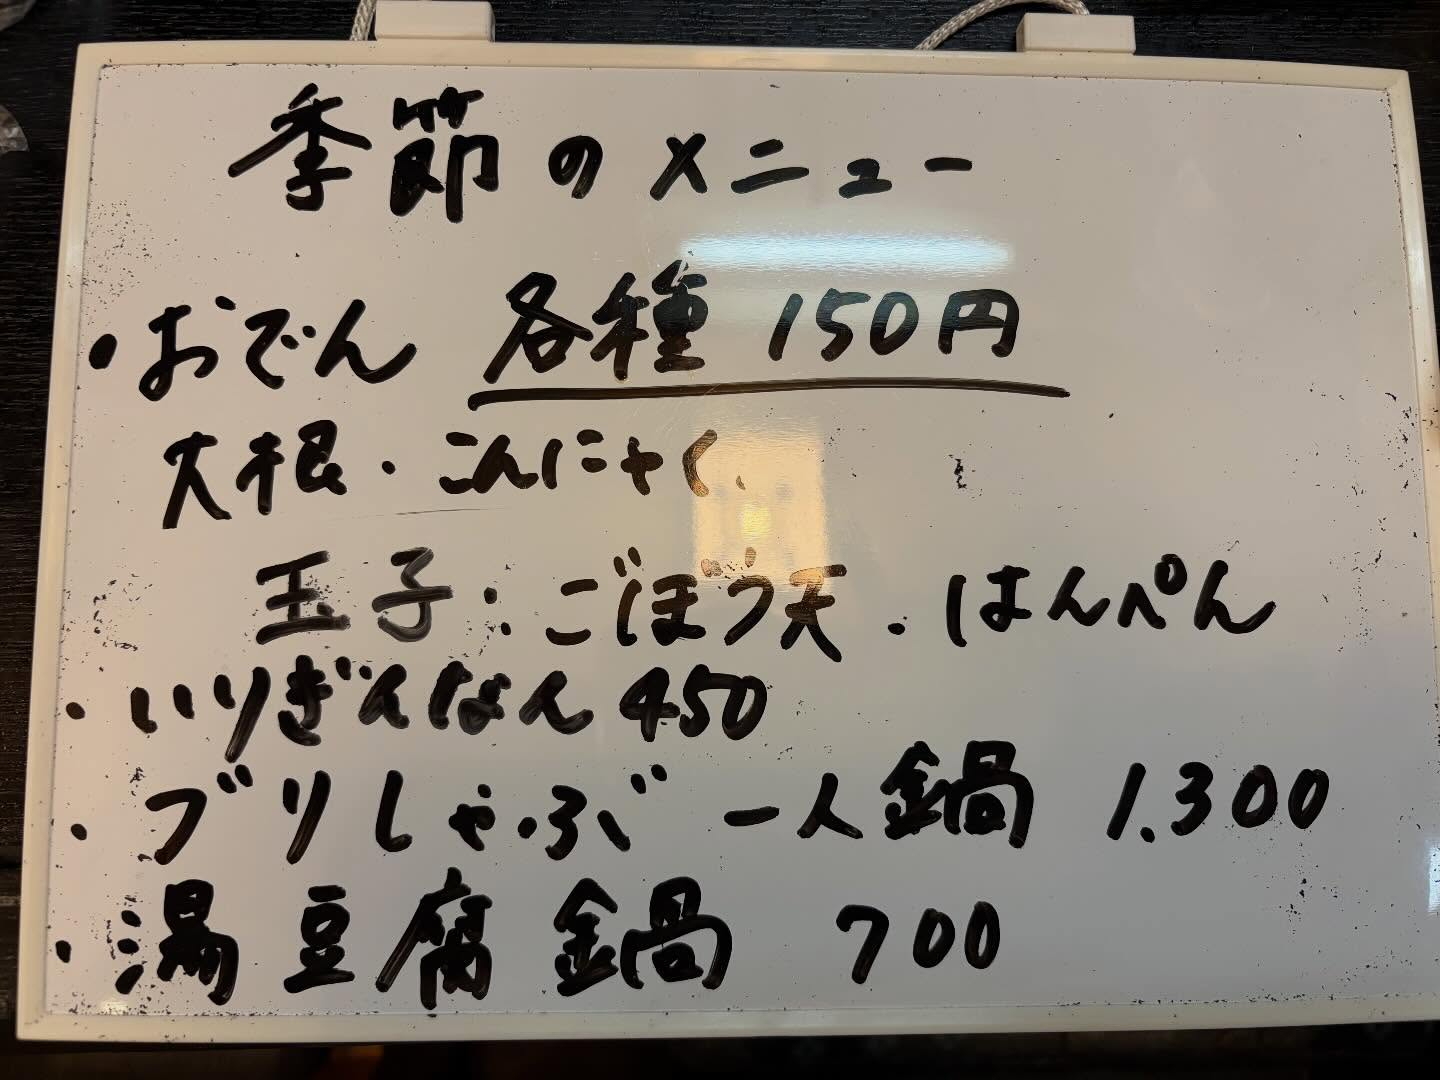 季節のメニュー
・おでん 各種 150円
大根・こんにゃく
玉子・ごぼう天・はんぺん
・いりぎんなん 450
・ブリしゃぶ 一人鍋 1.300
・湯豆腐鍋 700